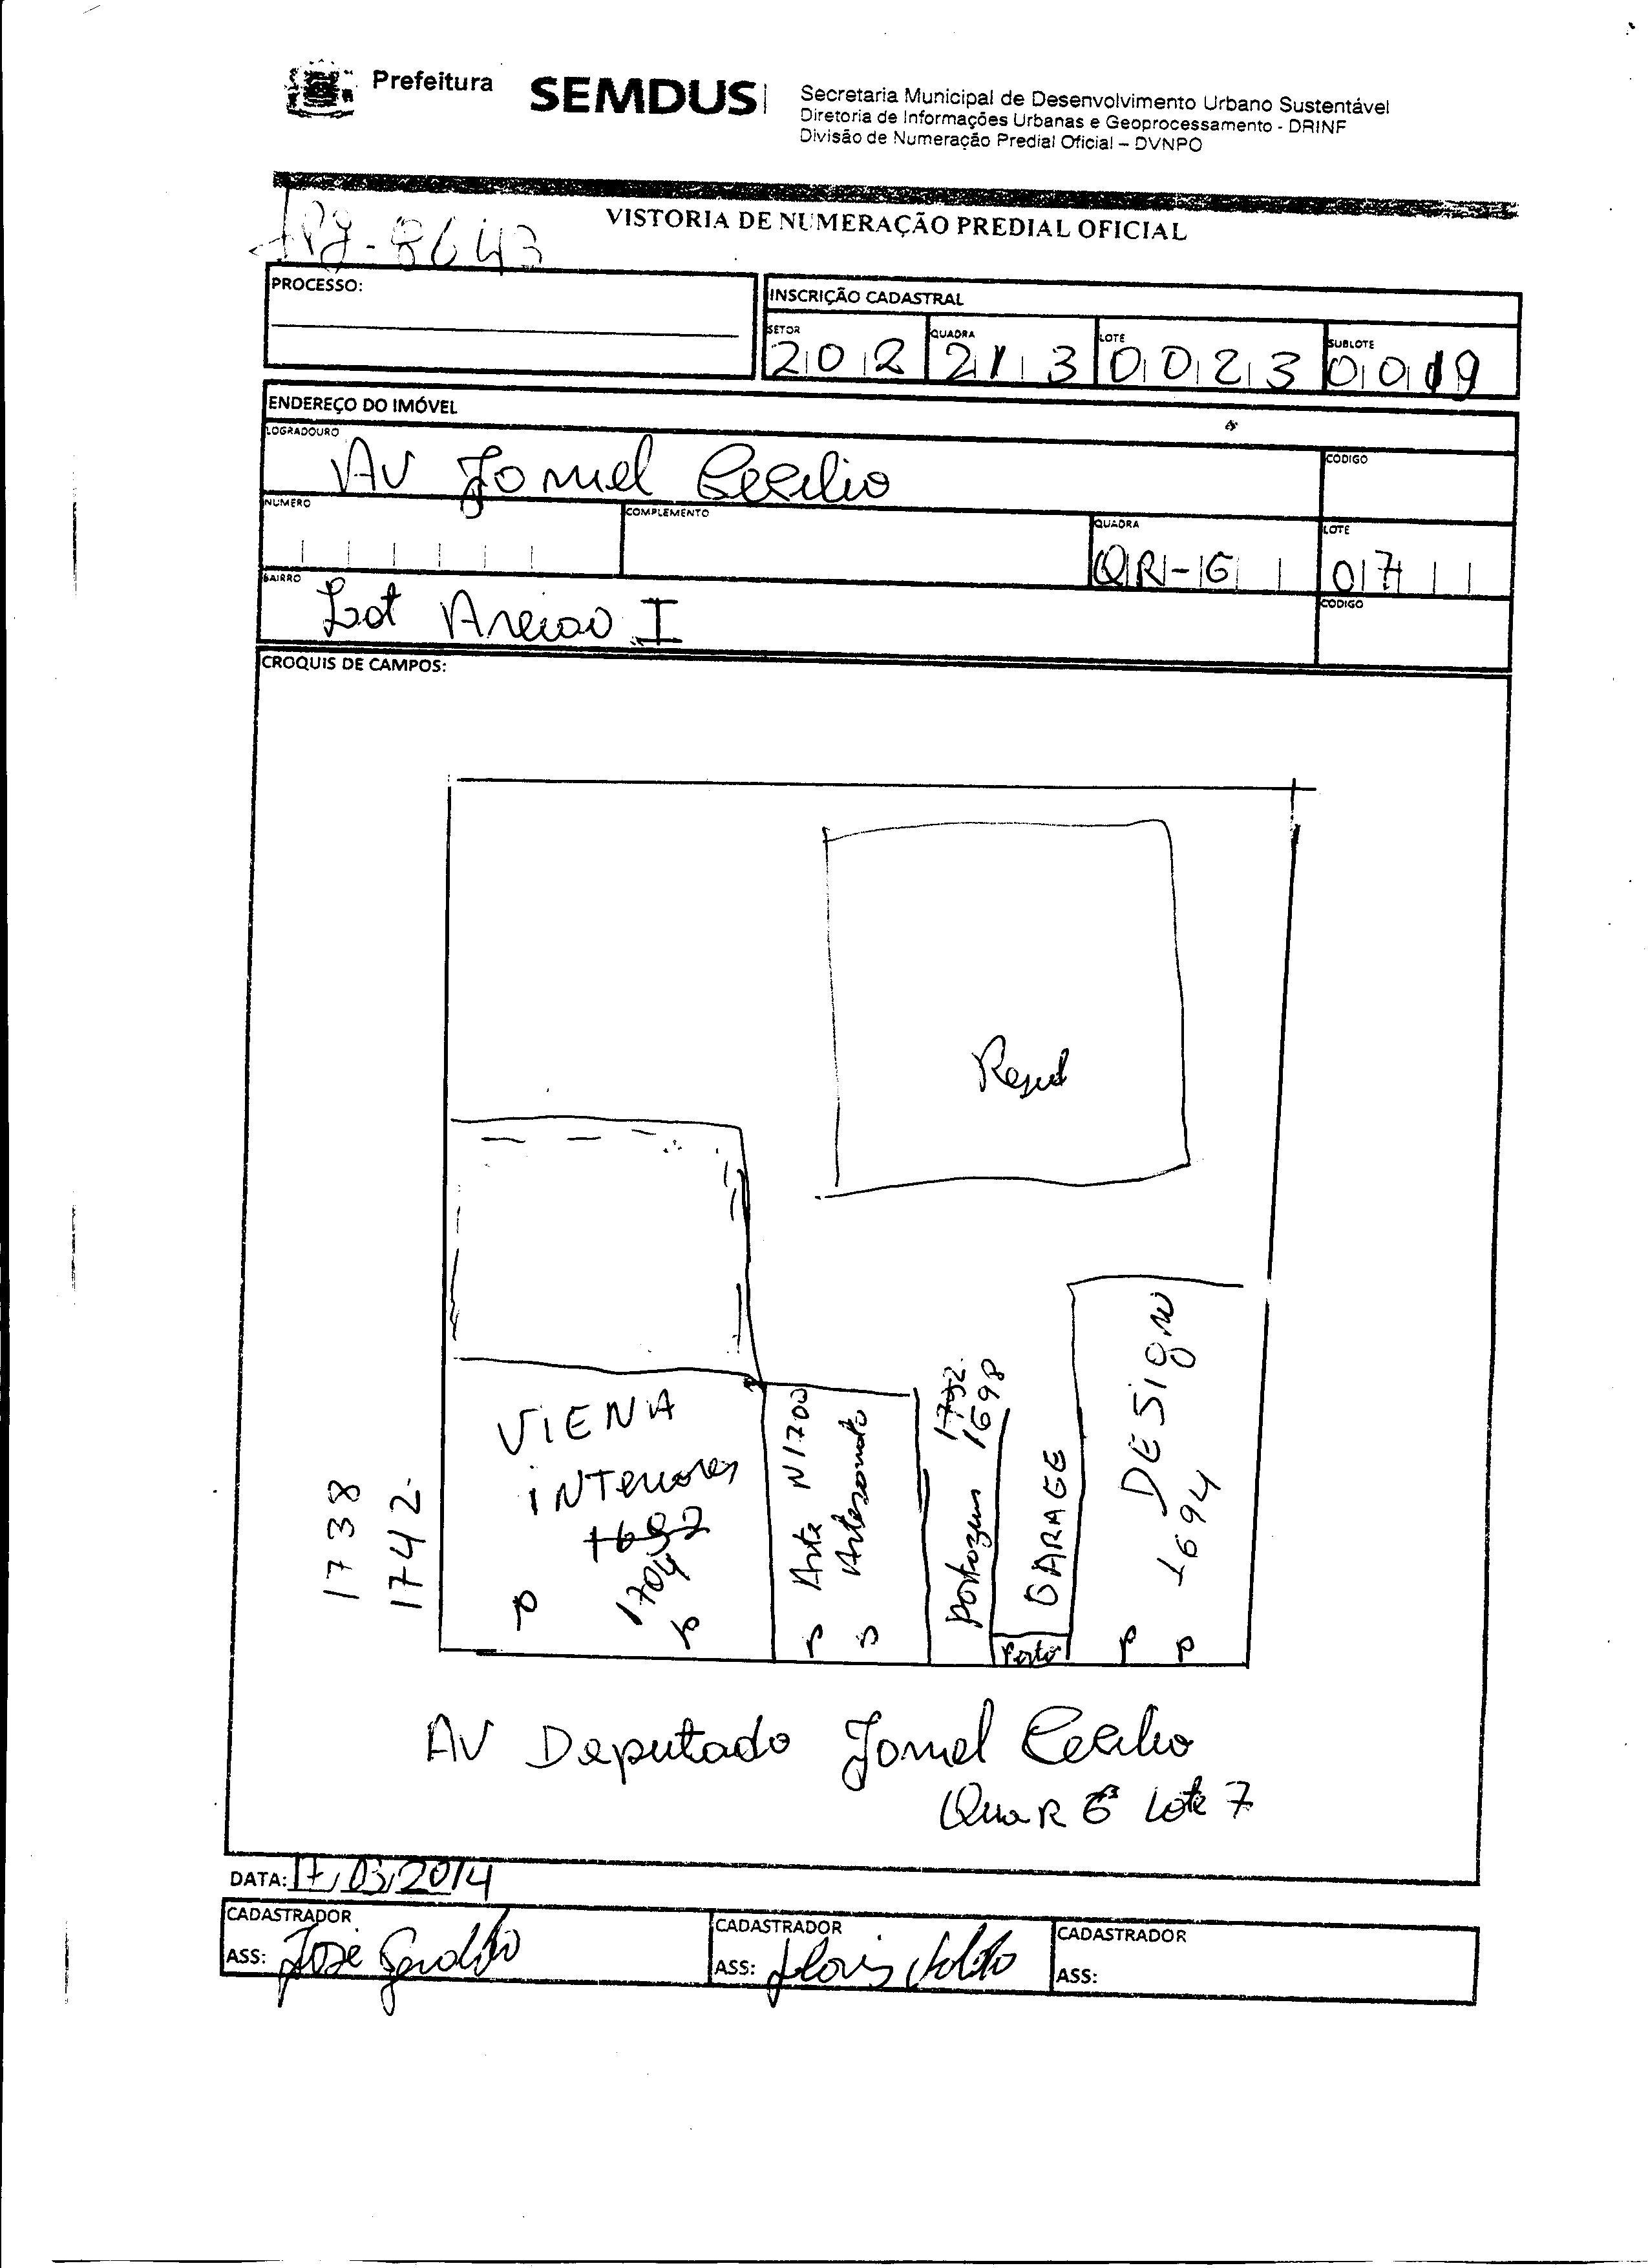 Prefeitura
SEMDUS
Secretaria Municipal de Desenvolvimento Urbano Sustentável
Diretoria de Informações Urbanas e Geoprocessamento - DRINF
Divisão de Numeração Predial Oficial – DVNPO
VISTORIA DE NUMERAÇÃO PREDIAL OFICIAL
8643
PROCESSO:
INSCRIÇÃO CADASTRAL
SETOR QUADRA LOTE SUBLOTE
202 213 0023 0019
ENDEREÇO DO IMÓVEL
LOGRADOURO CODIGO
AV Jamel Cecilio
NUMERO COMPLEMENTO QUADRA LOTE
QR-6 07
BAIRRO CODIGO
Lot Areiao I
CROQUIS DE CAMPOS:
Resid
VIENA
INTeriores
1692
1704
Arte N1700
Artesanato
portagem 1702
1698
GARAGE
Porto
DESIGN
1694
1738
1742
AV Deputado Jamel Cecilio
Qua R 6 Lote 7
DATA: 17/03/2014
CADASTRADOR
ASS: José
CADASTRADOR
ASS:
CADASTRADOR
ASS: